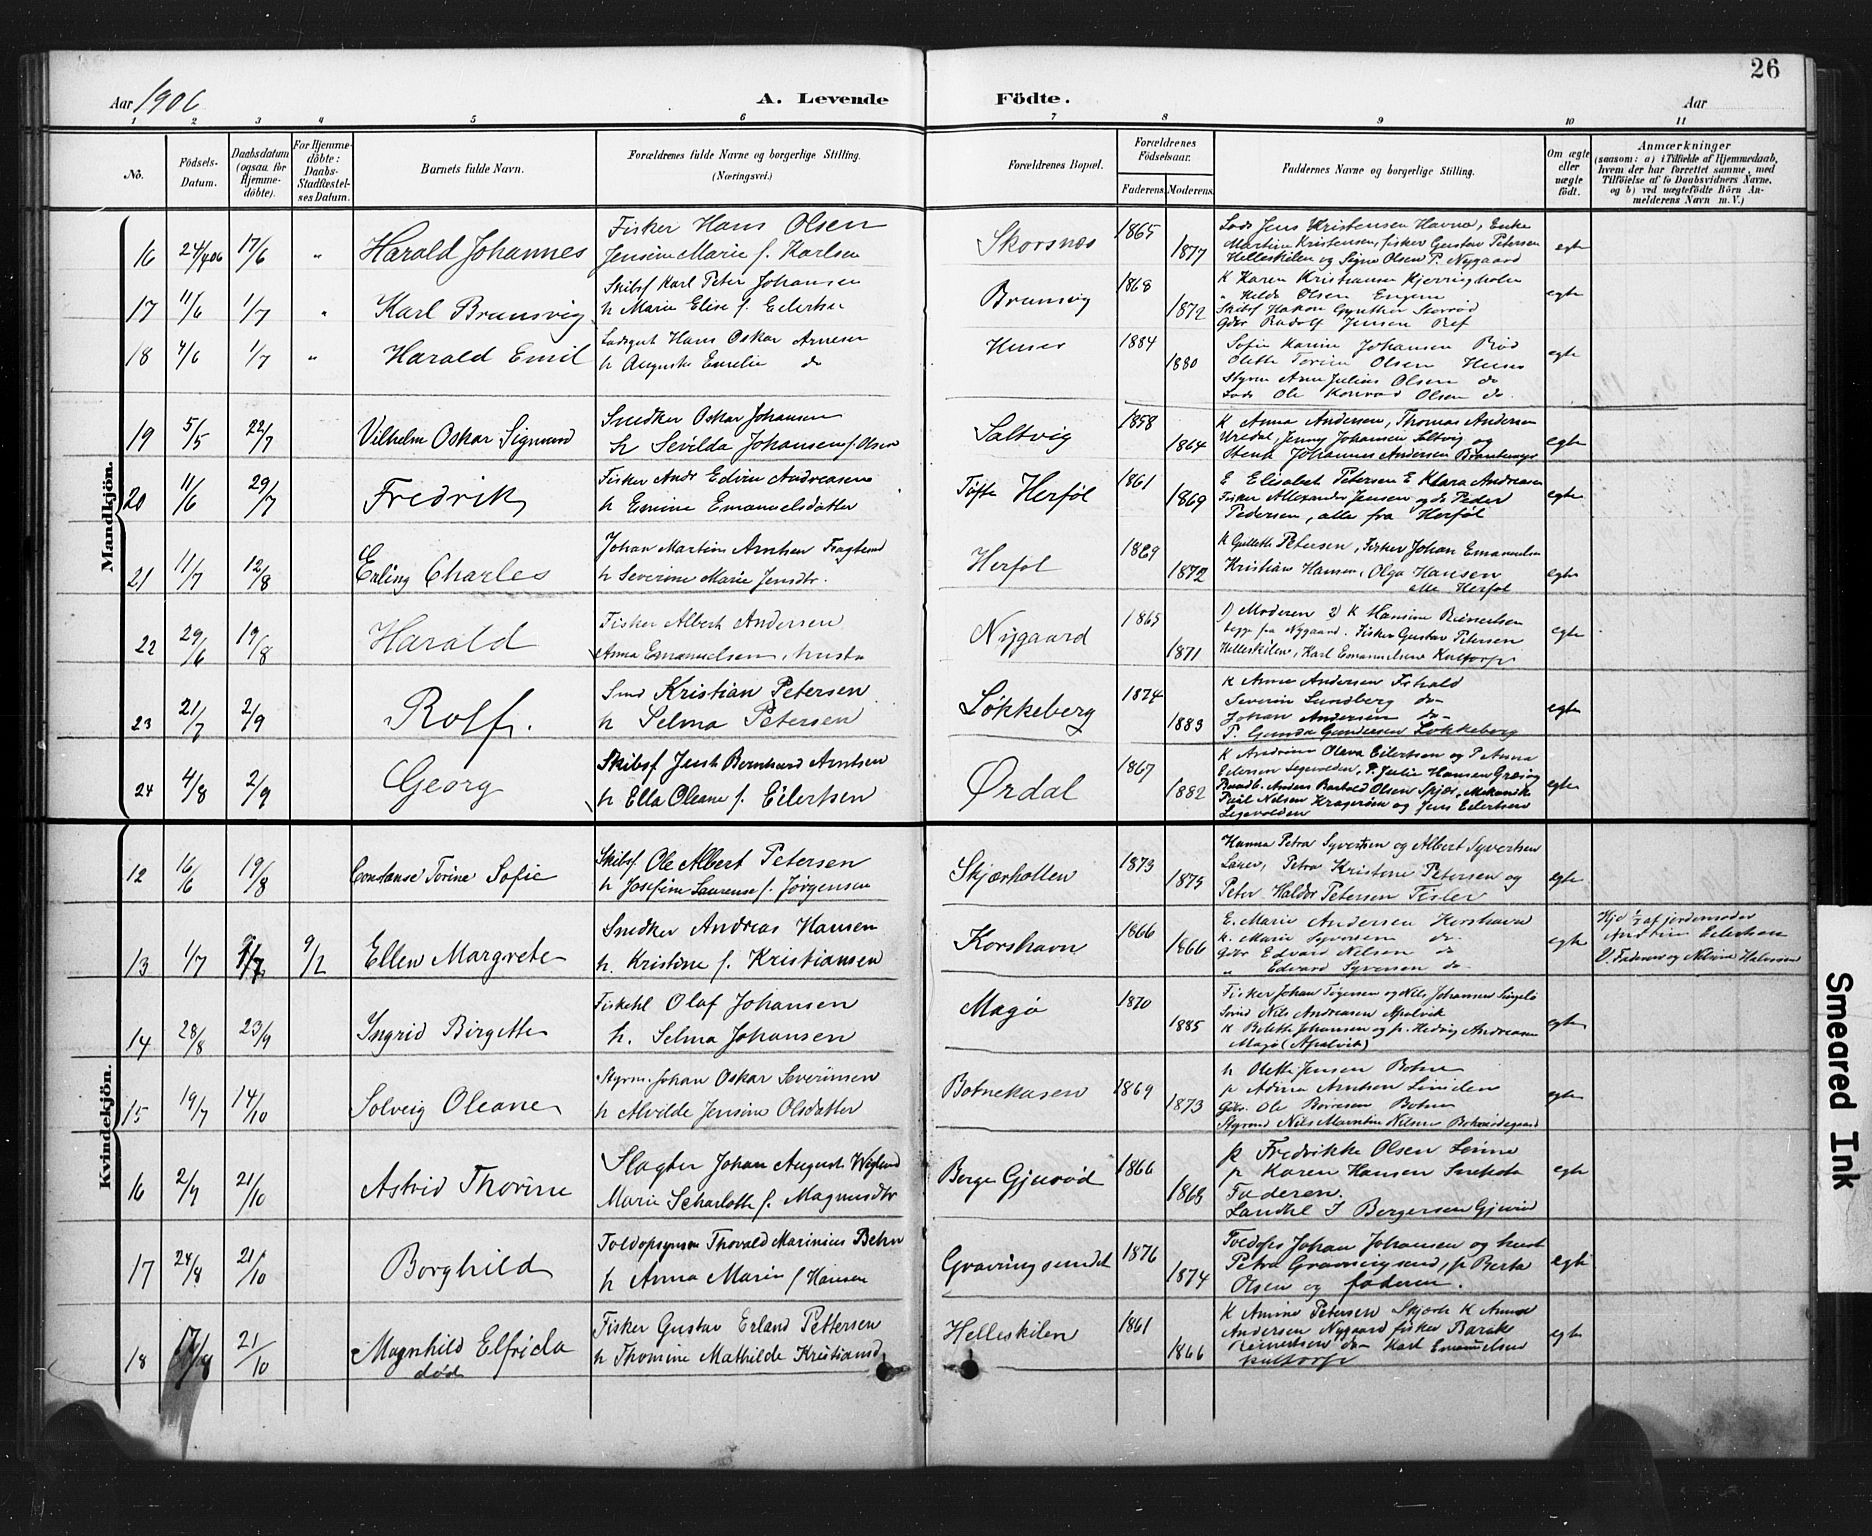 26
Aar 1906
A. Levende Födte.
Aar
1 2 3 4 5 6 7 8 9 10 11
No.
Födsels-Datum.
Daabsdatum (ogsaa for Hjemme-döbte).
For Hjemme-döbte: Daabs-Stadfæstel-ses Datum.
Barnets fulde Navn.
Forældrenes fulde Navne og borgerlige Stilling.
(Næringsvei.)
Forældrenes Bopæl.
Forældrenes Födselsaar.
Faderens. Moderens.
Faddernes Navne og borgerlige Stilling.
Om ægte eller uægte födt.
Anmærkninger
(saasom: a) i Tilfælde af Hjemmedaab,
hvem der har forrettet samme, med
Tilföielse af to Daabsvidners Navne,
og b) ved uægtefödte Börn An-
melderens Navn m. V.)
Mandkjön.
16 24/4 06 17/6 " Harald Johannes
Fisker Hans Olsen
Jensine Marie f. Karlsen
Skorsnæs 1865 1877
Lods Jens Kristensen Havnø, Enke
Martine Kristensen, fisker Gustav Petersen
Helleskilen og Signe Olsen P. Nygaard
egte
17 11/6 1/7 " Karl Brunsvig
Skibsf Karl Peter Johansen
h Marie Elise f. Eilertsen
Brunsvig 1868 1872
K Karen Kristiansen Kjerringholm
" Helda Olsen Engen
Skibsf Hakon Gynther Storrød
Gdbr Rudolf Jensen Ref
egte
18 4/6 1/7 " Harald Emil
Lodsgut Hans Oskar Arnesen
h Auguste Emelie do
Huser 1884 1880
Sofie Karine Johansen Rød
Olette Torine Olsen Huser
Styrm Arne Julius Olsen do
Lods Ole Konrad Olsen do.
egte
19 5/5 22/7 Vilhelm Oskar Sigmund
Snedker Oskar Johansen
h Sevilda Johansen f. Olsen
Saltvig 1858 1864
K Anna Andersen, Thomas Andersen
Urdal, Jenny Johansen Saltvig og
Stenh Johannes Andersen
egte
20 11/6 29/7 Fredrik
Fisker Andr Edvin Andreasen
h Emine Emanuelsdatter
Tøfte Herføl 1861 1869
E Elisabet Petersen E Klara Andreasen
Fisker Allexander Jensen og do Peder
Pedersen, alle fra Herføl
egte
21 11/7 12/8 Erling Charles
Johan Martin Arntsen
h Severine Marie Jensdtr.
Herføl 1869 1872
K Gullette Petersen, Fisker Johan Emanuelsen
Kristian Hansen, Olga Hansen
alle Herføl
egte
22 29/6 19/8 Harald
Fisker Albert Andersen
Anna Emanuelsen, hustr
Nygaard 1865 1871
1) Moderen 2) K Hansine Reinertsen
begge fra Nygaard. Fisker Gustav Petersen
Helleskilen, Karl Emanuelsen Kultorp
egte
23 21/7 2/9 Rolf.
Smd Kristian Petersen
h Selma Petersen
Løkkeberg 1874 1883
K Anna Andersen
Severin Lundberg do
Johan Andersen do
P. Gunda Gundersen Løkkeberg
egte
24 4/8 2/9 Georg
Skibsf Just Bernhard Arntsen
h Ella Oleane f. Eilertsen
Ørdal 1867 1882
K Andrine Olava Eilertsen og P. Anna
Eilersen Ligevolden, P. Julie Hansen
Anders Bartold Olsen Spjær, Mekanik
Nilsen Kragerøen og Jens Eilertsen
Ligevolden
egte
Kvindekjön.
12 16/6 19/8 Constanse Torine Sofie
Skibsf Ole Albert Petersen
h Josefine Laurense f. Jørgensen
Skjærhollen 1873 1875
Hanna Petra Syvertsen og Albert Syvertsen
Laner, Petra Kristine Petersen og
Peter Haldor Petersen Tisler
egte
13 1/7 9/2 Ellen Margrete
Snedker Andreas Hansen
h. Kristine f. Kristiansen
Korshavn 1866 1866
E. Marie Andersen Korshavn
K. Marie Syversen do
Gdbr Edvard Nilsen do
" Edvard Syversen do
egte
Hjd 1/7 af jordemoder
Andrine Eilertsen
V. Faderen og Nilsine Halvorsen
14 28/8 23/9 Ingrid Birgitte
Fiskehl Olaf Johansen
h. Selma Johansen
Magø 1870 1885
Fisker Johan Johansen Singelø
Nils Andreasen Apalvik
K Bolette Johansen og p. Hedvig Andreasen
Magø (Apalvik)
egte
15 19/7 14/10 Solveig Oleane
Styrm. Johan Oskar Severinsen
h Alvilde Jensine Olsdatter
Botnekasen 1869 1873
h Olette Jensen Botne
p Adma Arntsen Liniden
Gdbr. Ole Botne
Styrmd Nils Martin Nilsen
egte
16 2/9 21/10 Astrid Thorine
Slagter Johan August Weglund
Marie Scharlotte f. Magnusdtr
Berge Gjurød 1866 1868
p Fredrikke Olsen Linne
p Karen Hansen
Faderen.
Landhl I Bergersen Gjurød
egte
17 24/8 21/10 Borghild
Toldopsynsm Thorvald Marinius Behn
h Anna Marie f Hansen
Gravningsundet 1876 1874
Toldops Johan Johansen og hust
Petra Gravningsund, p Berta
Olsen og faderen.
egte
18 17/8 21/10 Magnhild Elfrida
død
Fisker Gustav Erland Pettersen
h Thomine Mathilde Kristiansd
Helleskilen 1861 1866
K Amine Petersen Skjæreh K Anna
Andersen Nygaard fisker
Reinertsen do Karl Emanuelsen
Kultorp
egte
Smeared Ink